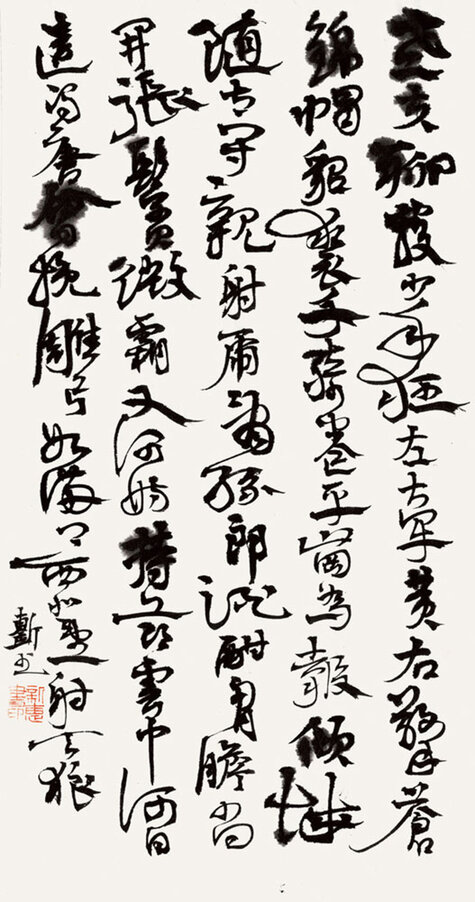 老夫聊發少年狂左牽黃右擎蒼
錦帽貂裘千騎卷平岡為報傾城
隨太守親射虎看孫郎酒酣胸膽尚
開張鬢微霜又何妨持節雲中何日
遣馮唐會挽雕弓如滿月西北望射天狼